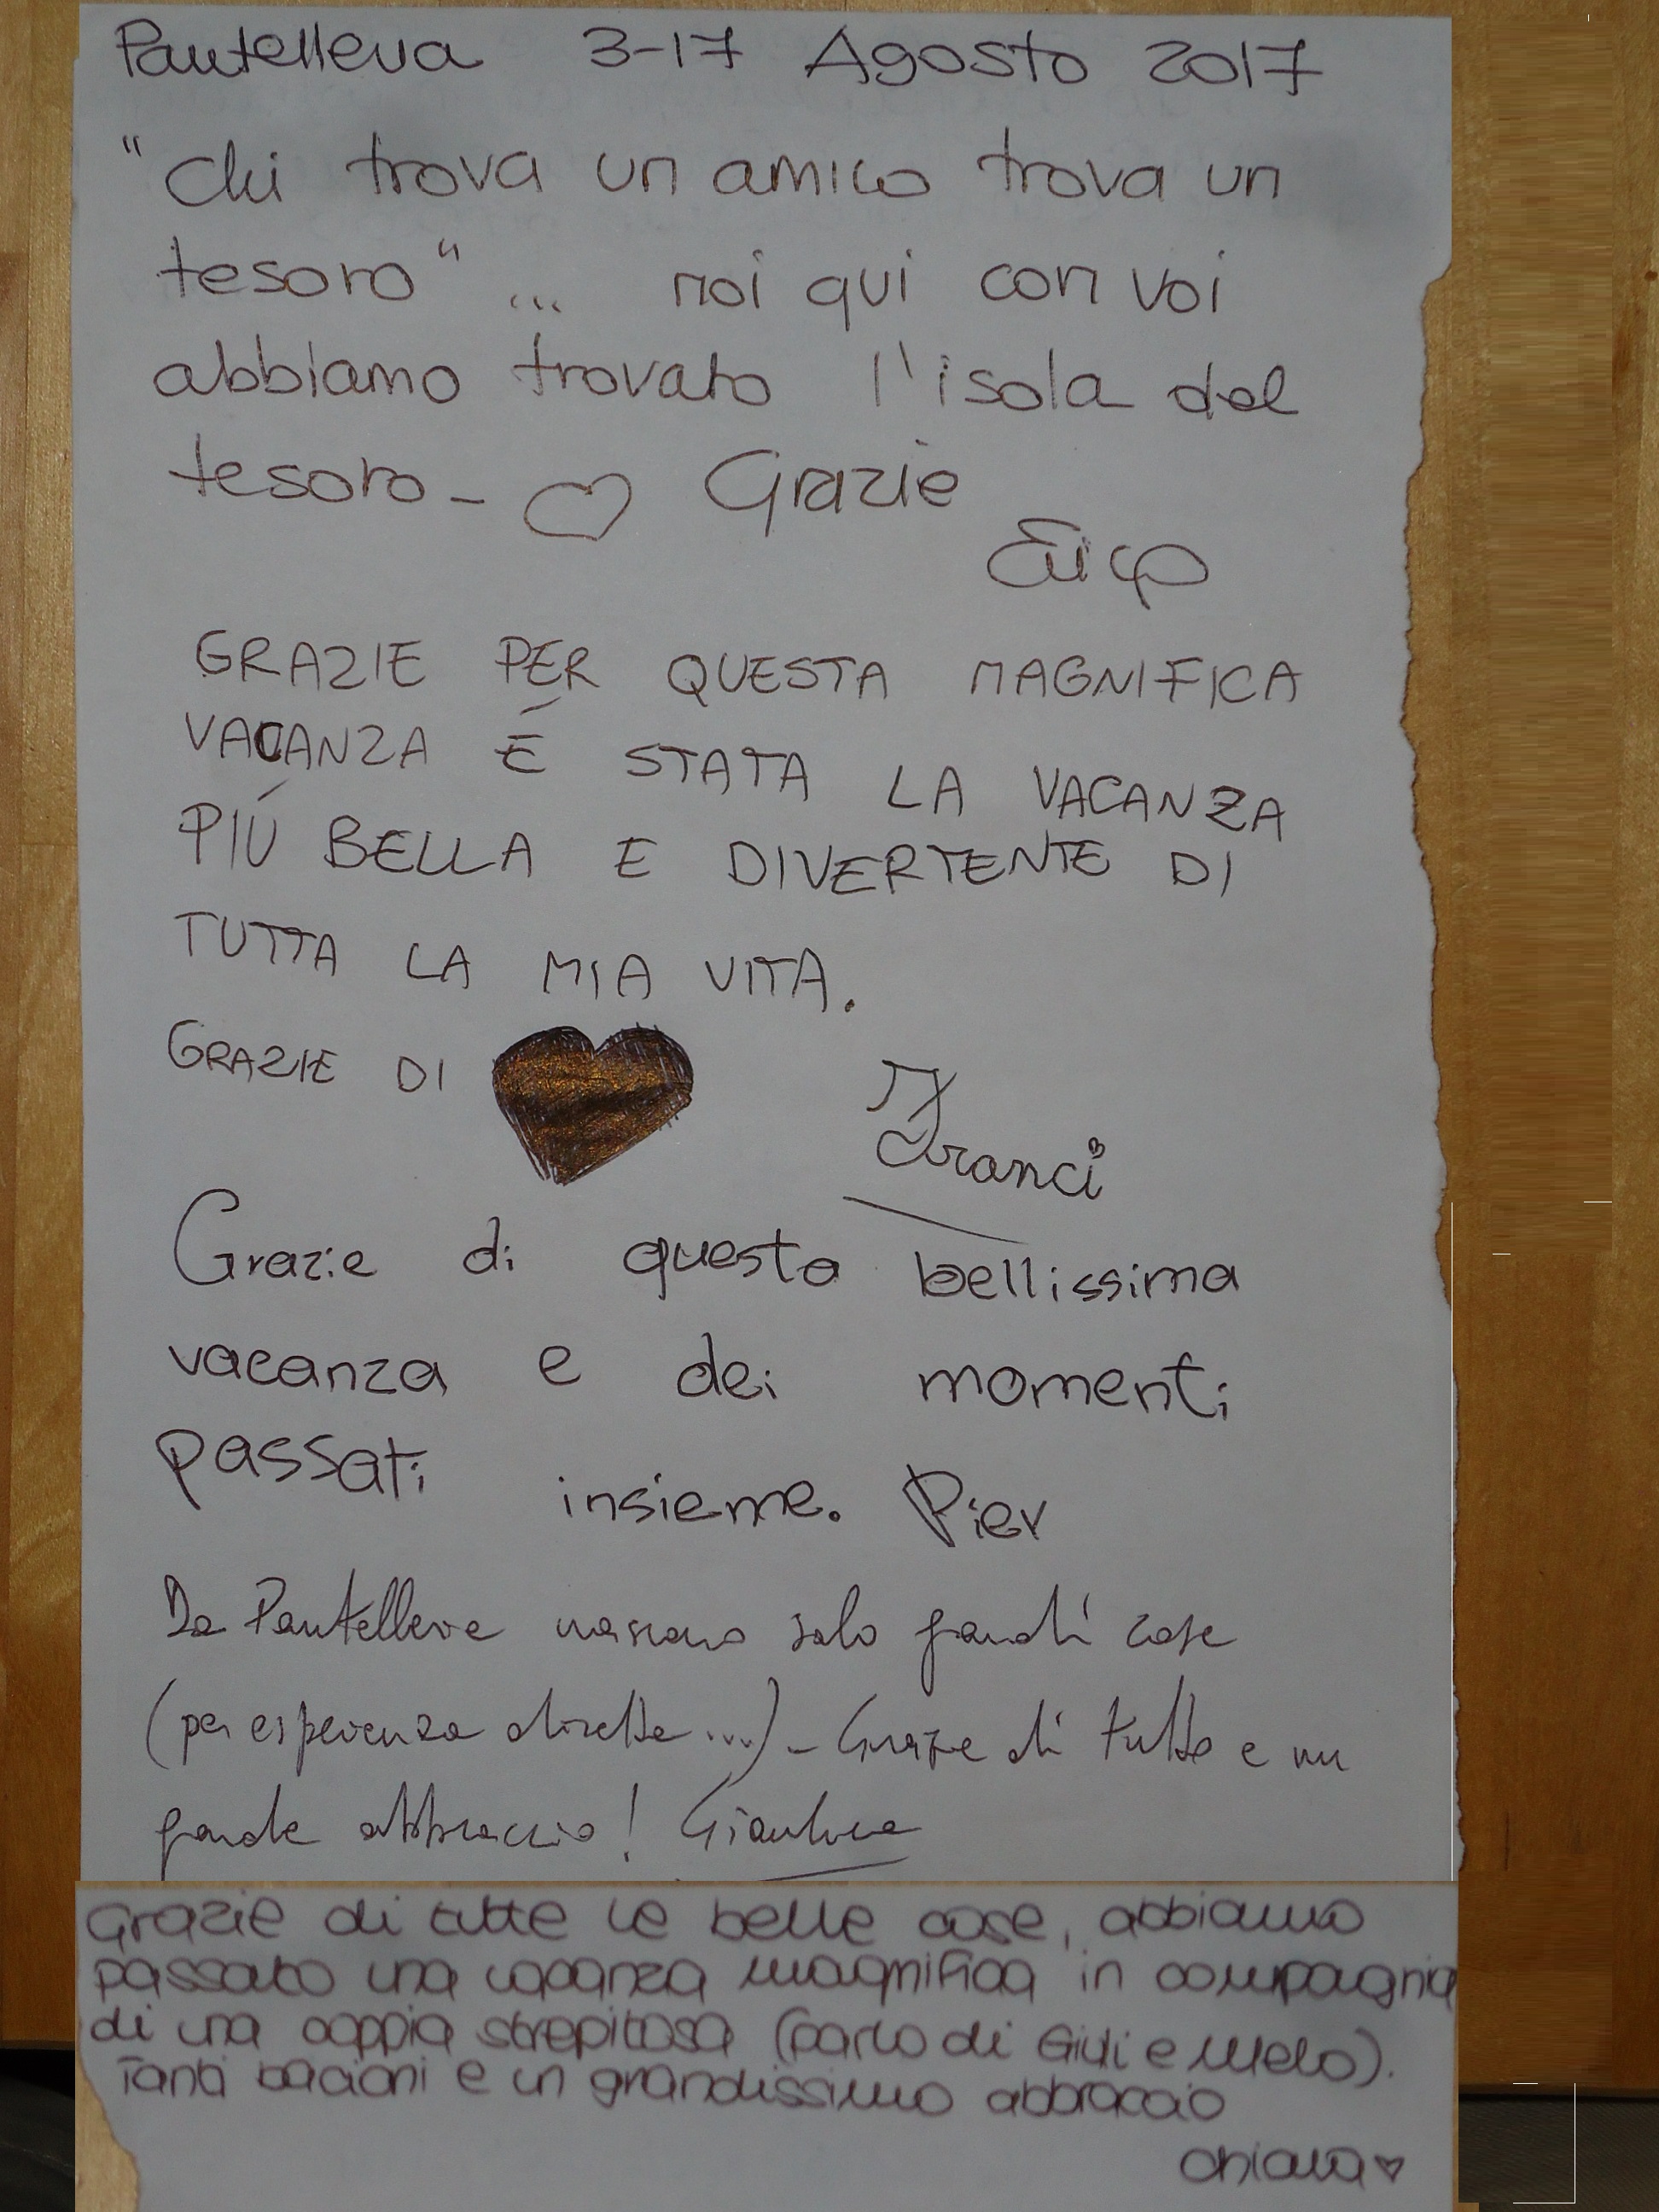 Pantelleria 3-17 Agosto 2017
"Chi trova un amico trova un
tesoro" ... noi qui con voi
abbiamo trovato l'isola del
tesoro - Grazie
GRAZIE PER QUESTA MAGNIFICA
VACANZA É STATA LA VACANZA
PIÚ BELLA E DIVERTENTE DI
TUTTA LA MIA VITA.
GRAZIE DI
Franci
Grazie di questa bellissima
vacanza e dei momenti
passati insieme. Pier
Da Pantelleria nascono solo grandi cose
(per esperienza diretta...) - Grazie di tutto e un
grande abbraccio! Gianluca
Grazie di tutte le belle cose, abbiamo
passato una vacanza magnifica in compagnia
di una coppia strepitosa (parlo di Giuli e Melo).
Tanti bacioni e un grandissimo abbraccio
Chiara